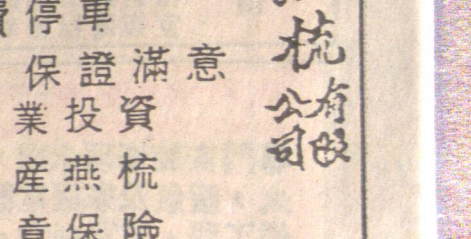 停車
保證滿意
業投資
産燕梳
意保險
梳
有限
公司